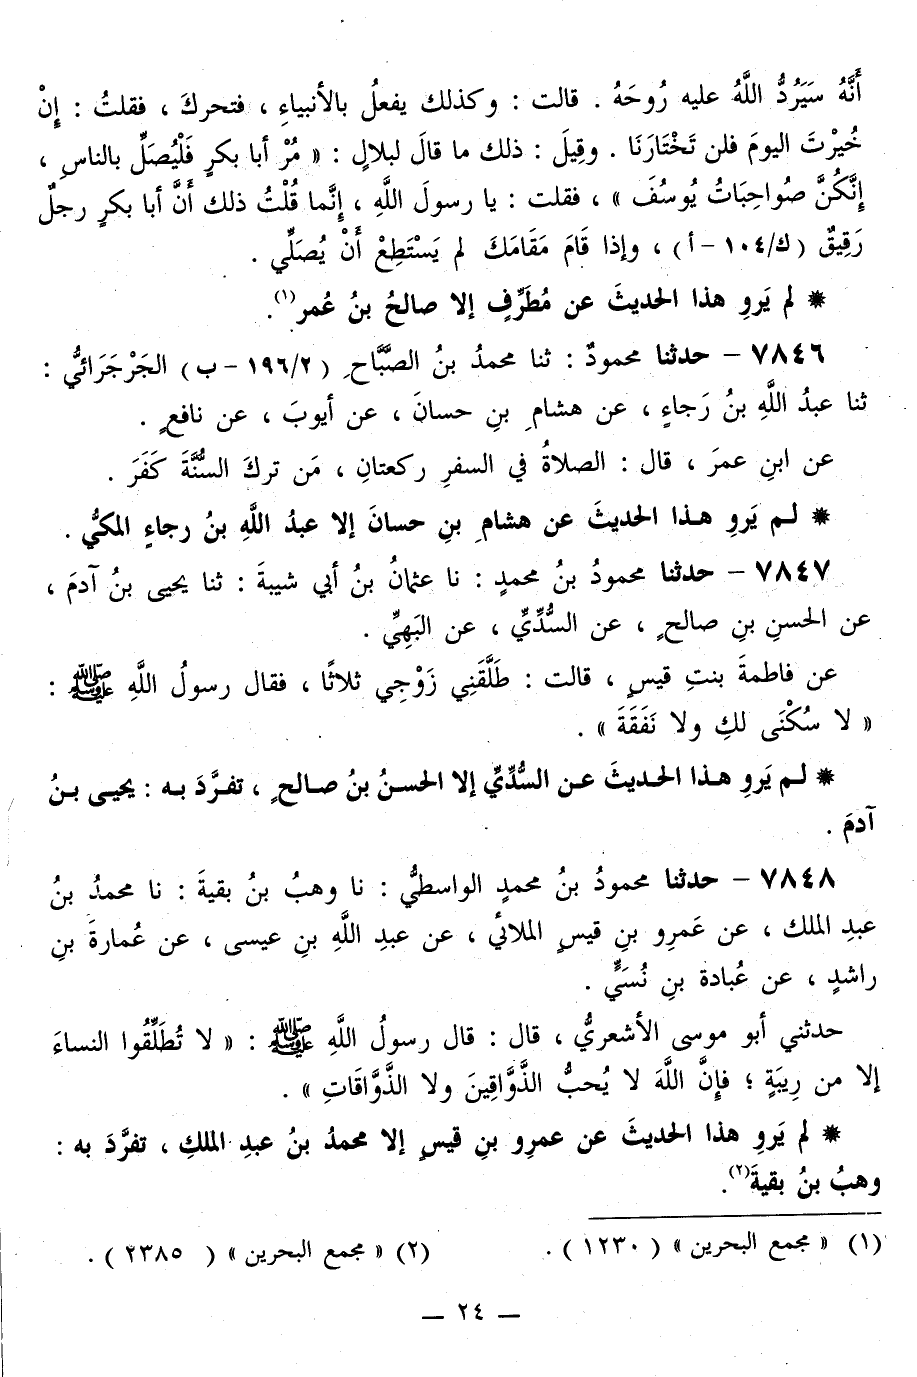 أَنَّهُ سَيَرُدُّ اللَّهُ عليه رُوحَهُ . قالت : وكذلك يفعلُ بالأنبياءِ ، فتحركَ ، فقلتُ : إِنْ
خُيِرْتَ اليومَ فلن تَخْتَارَنَا . وقِيلَ : ذلك ما قالَ لبلالٍ : « مُرْ أبا بكرٍ فَلْيُصَلِّ بالناسِ ،
إِنَّكُنَّ صَواحِبَاتُ يُوسُفَ » ، فقلت : يا رسولَ اللَّهِ ، إِنَّما قُلْتُ ذلك أَنَّ أبا بكرٍ رجلٌ
رَقِيقٌ (ك/١٠٤ – أ) ، وإذا قَامَ مَقَامَكَ لم يَسْتَطِعْ أَنْ يُصَلِّي .
* لم يَروِ هذا الحديثَ عن مُطَرِّفٍ إلا صالحُ بنُ عُمر(١).
٧٨٤٦ – حدثنا محمودٌ : ثنا محمدُ بنُ الصَّبَّاحِ (١٩٦/٢ – ب) الجَرْجَرَائيُّ :
ثنا عبدُ اللَّهِ بنُ رَجاءٍ ، عن هشامِ بنِ حسانَ ، عن أيوبَ ، عن نافعٍ .
عن ابنِ عمرَ ، قال : الصلاةُ في السفرِ ركعتانِ ، مَن تركَ السُّنَّةَ كَفَرَ .
* لـم يَروِ هـذا الحديثَ عن هشامِ بنِ حسانَ إلا عبدُ اللَّهِ بنُ رجاءٍ المكيُّ .
٧٨٤٧ – حدثنا محمودُ بنُ محمدٍ : نا عثمانُ بنُ أبي شيبةَ : ثنا يحيى بنُ آدمَ ،
عن الحسنِ بنِ صالحٍ ، عن السُّدِّيِّ ، عن البَهِيِّ .
عن فاطمةَ بنتِ قيسٍ ، قالت : طَلَّقَنِي زَوْجِي ثلاثًا ، فقال رسولُ اللَّهِ ﷺ :
« لا سُكْنَى لكِ ولا نَفَقَةَ » .
* لـم يَروِ هـذا الحـديثَ عـن السُّدِّيِّ إلا الحسنُ بنُ صالحٍ ، تفـرَّدَ بـه : يحيـى بـنُ
آدمَ .
٧٨٤٨ – حدثنا محمودُ بنُ محمدٍ الواسطيُّ : نا وهبُ بنُ بقيةَ : نا محمدُ بنُ
عبدِ الملك ، عن عَمرِو بنِ قيسٍ الملائيِّ ، عن عبدِ اللَّهِ بنِ عيسى ، عن عُمارةَ بنِ
راشدٍ ، عن عُبادة بنِ نُسَيٍّ .
حدثني أبو موسى الأشعريُّ ، قال : قال رسولُ اللَّهِ ﷺ : « لا تُطَلِّقُوا النساءَ
إلا من رِيبَةٍ ؛ فإنَّ اللَّهَ لا يُحبُّ الذَّوَّاقِينَ ولا الذَّوَّاقَاتِ » .
* لم يَروِ هذا الحديثَ عن عمرِو بنِ قيسٍ إلا محمدُ بنُ عبدِ الملكِ ، تفرَّدَ به :
وهبُ بنُ بقيةَ(٢).
(١) « مجمع البحرين » (١٢٣٠) . (٢) « مجمع البحرين » (٢٣٨٥) .
— ٢٤ —